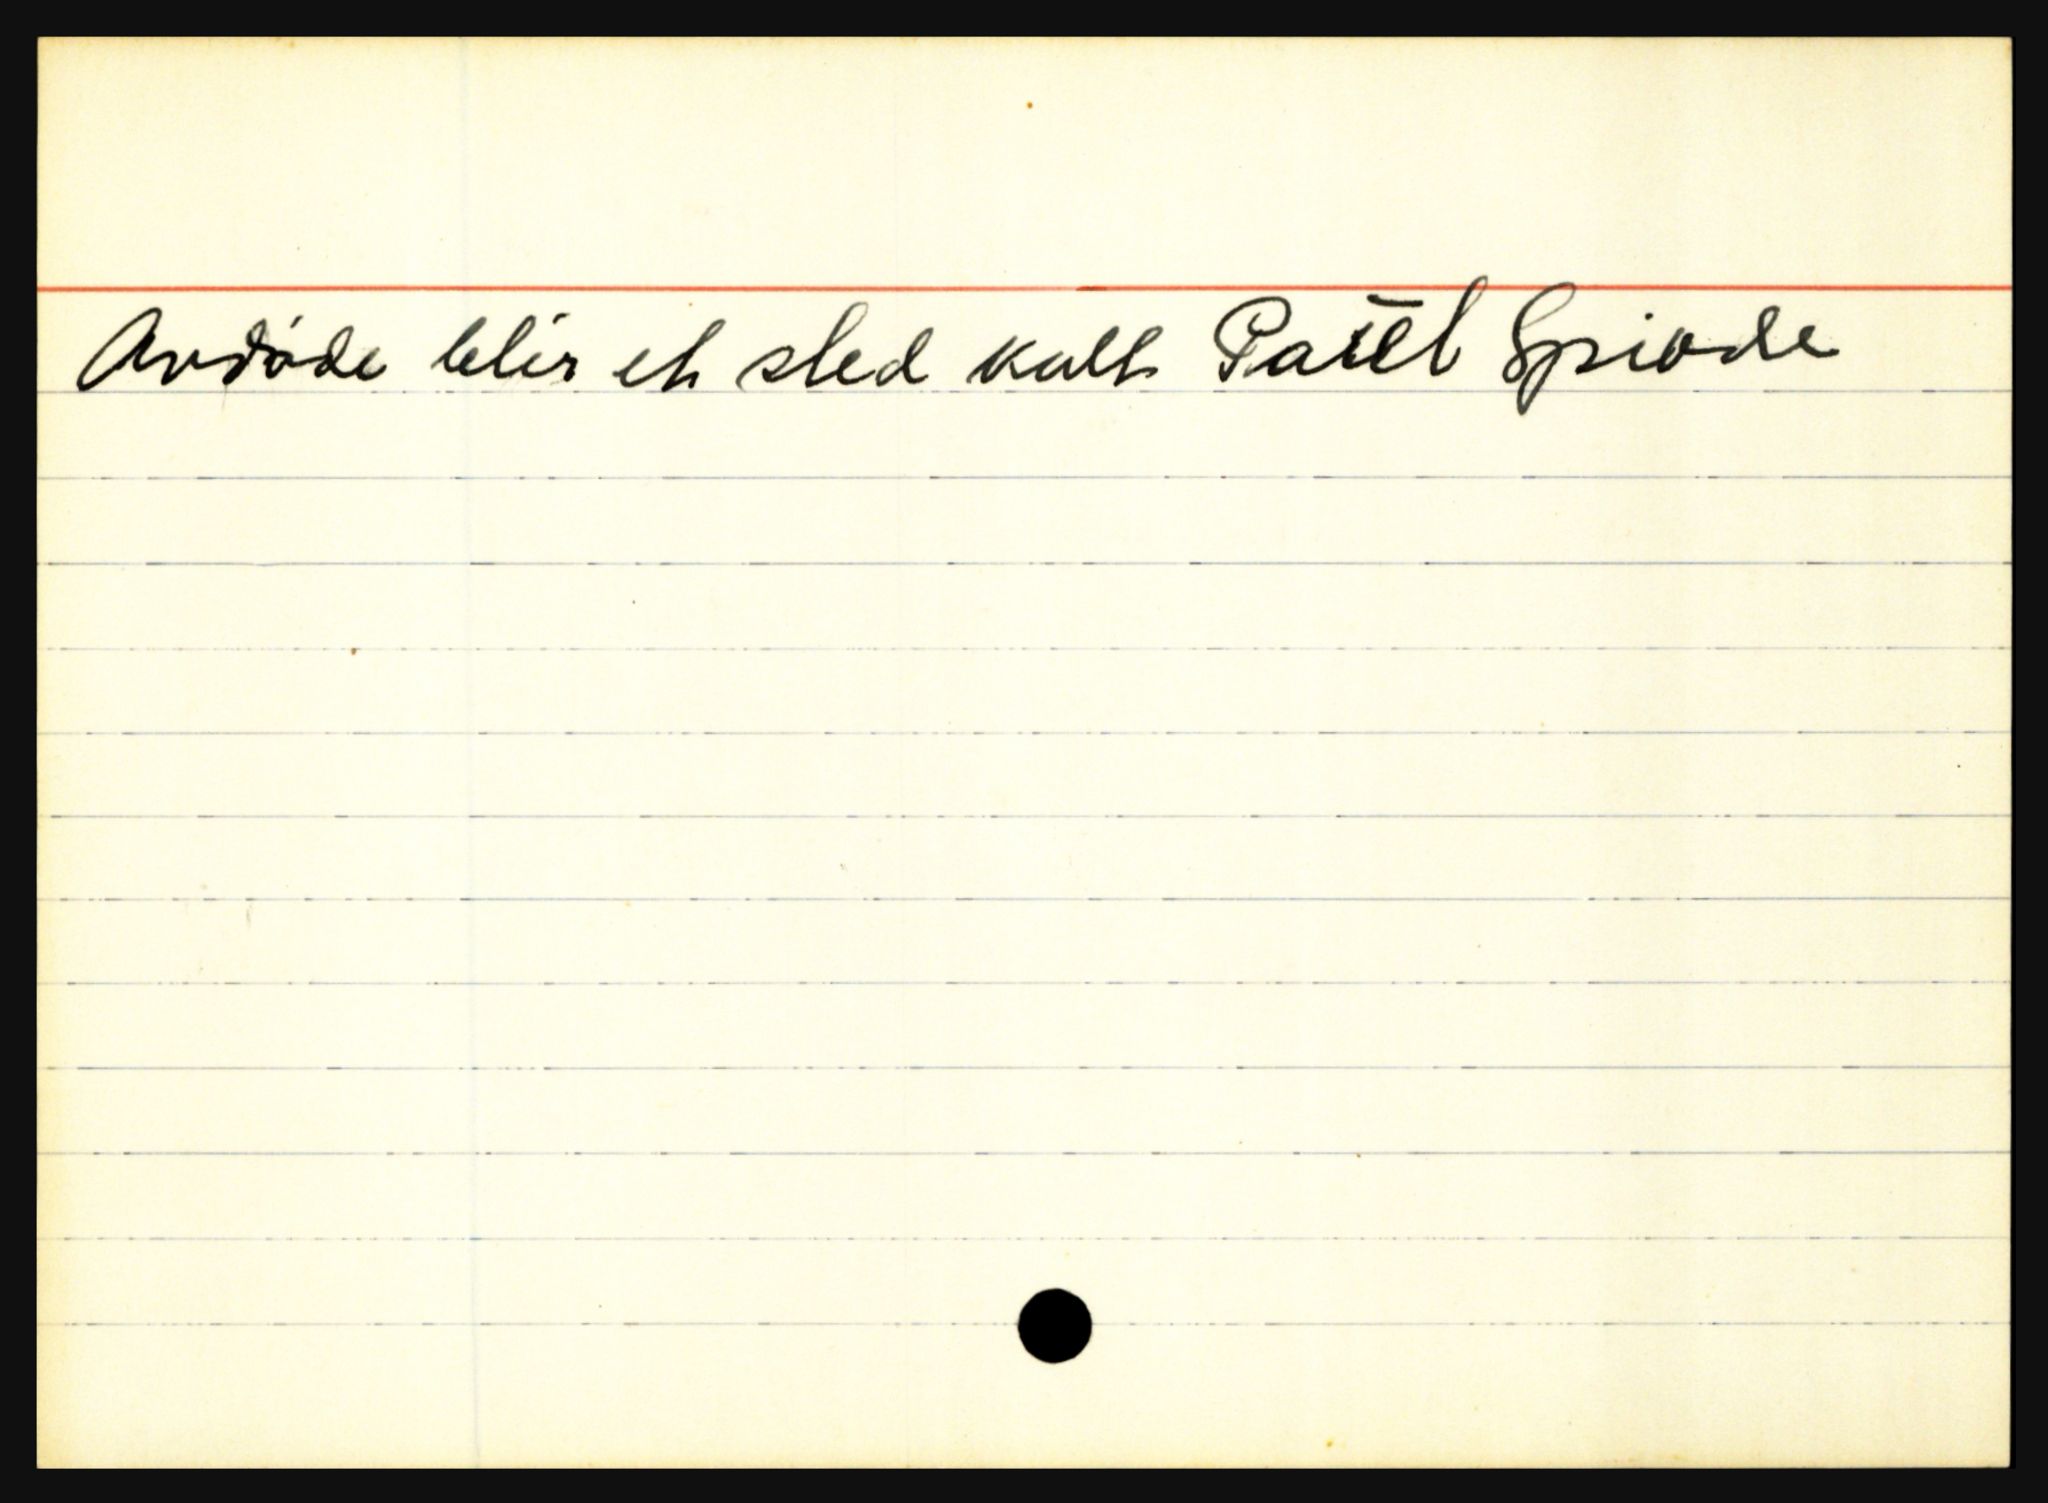 Avdøde blir et sted kalt Paūl Spiode